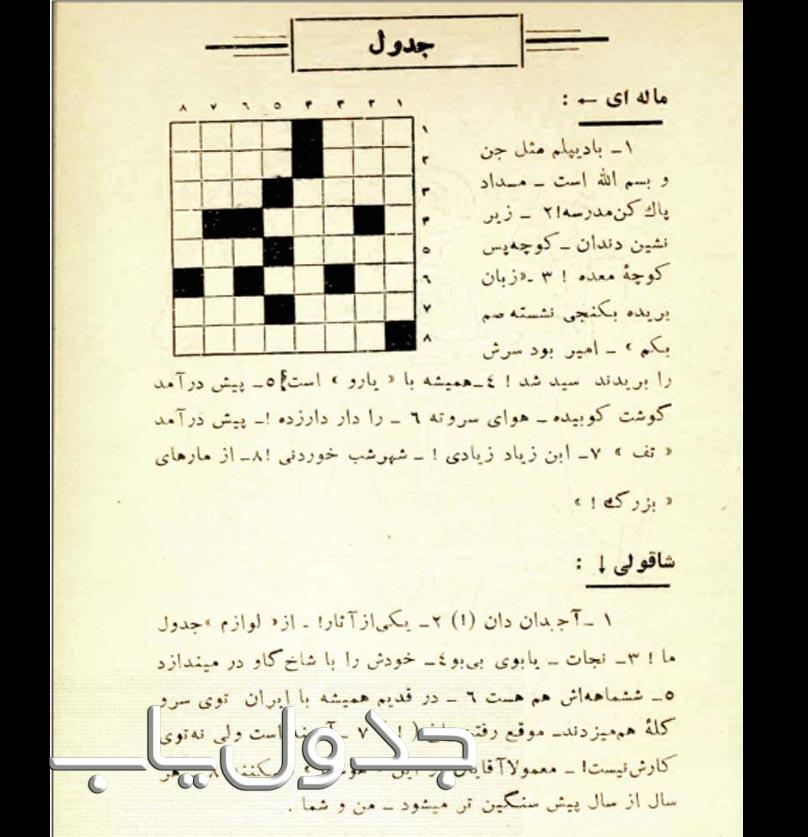 جدول
ماله ای ← :
۸ ۷ ۶ ۵ ۴ ۳ ۲ ۱
۱
۲
۳
۴
۵
۶
۷
۸
۱ـ بادیپلم مثل جن
و بسم الله است ـ مـداد
پاك كن مدرسه! ۲ ـ زیر
نشین دندان ـ كوچه پس
كوچهٔ معده ! ۳ ـ «زبان
بریده بكنجی نشسته صم
بكم » ـ امیر بود سرش
را بریدند سید شد ! ۴ـ همیشه با « یارو » است! ۵ـ پیش درآمد
گوشت كوبیده ـ هوای سروته ۶ ـ را دار دارزده !ـ پیش درآمد
« تف » ۷ـ ابن زیاد زیادی ! ـ شهرشب خوردنی !۸ـ از مارهای
« بزرگ ! »
شاقولی ↓ :
۱ ـ آجیدان دان (!) ۲ـ یكی از آثار! ـ از« لوازم »جدول
ما ! ۳ـ نجات ـ یابوی بی بو ۴ـ خودش را با شاخ گاو در میندازد
۵ـ ششماهه‌اش هم هست ۶ ـ در قدیم همیشه با ایران توی سرو
كلهٔ هم میزدندـ موقع ( ! ۷ ـ است ولی نه توی
كارش نیست! ـ معمولاآقایان این ۸ هر
سال از سال پیش سنگین تر میشود ـ من و شما .
جدول یاب